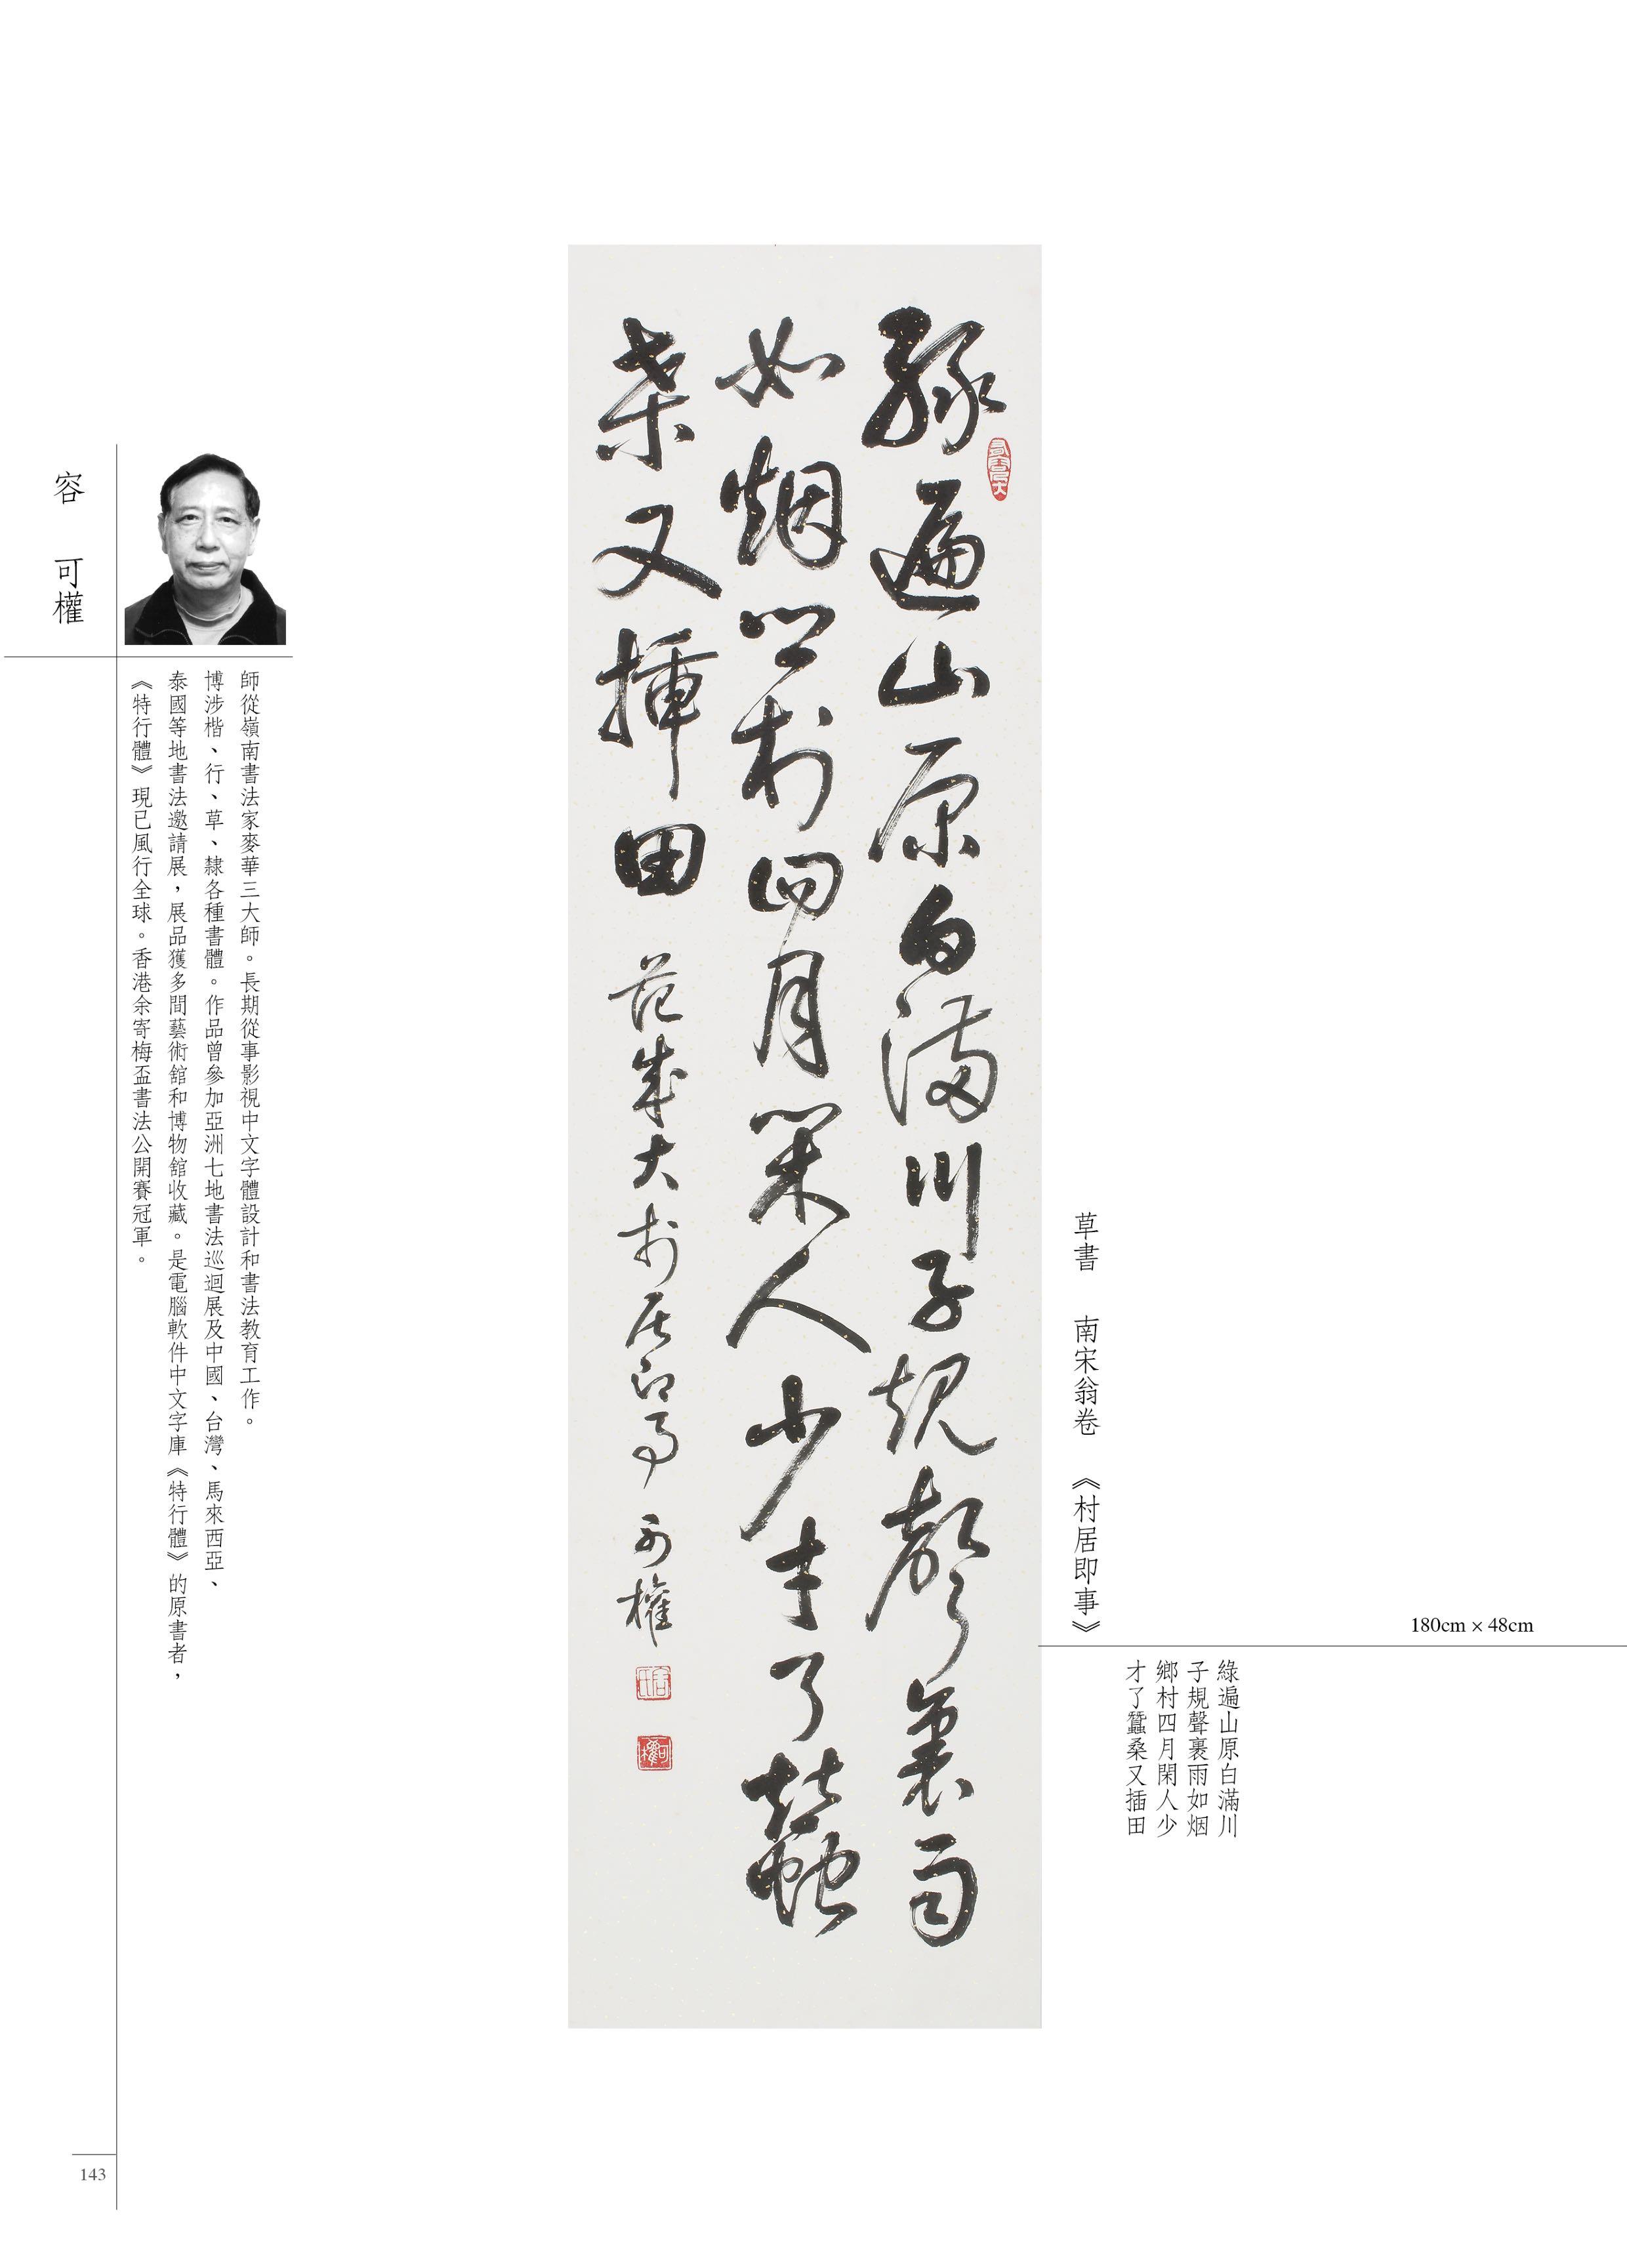 180cm × 48cm
綠遍山原白滿川
子規聲裏雨如烟
鄉村四月閑人少
才了蠶桑又插田
草書 南宋翁卷 《村居即事》
綠遍山原白滿川子規聲裏雨
如烟鄉村四月閑人少才了蠶
桑又插田 范成大村居即事 可權
容氏
可權
容 可權
師從嶺南書法家麥華三大師。長期從事影視中文字體設計和書法教育工作。
博涉楷、行、草、隸各種書體。作品曾參加亞洲七地書法巡迴展及中國、台灣、馬來西亞、
泰國等地書法邀請展，展品獲多間藝術舘和博物舘收藏。是電腦軟件中文字庫《特行體》的原書者，
《特行體》現已風行全球。香港余寄梅盃書法公開賽冠軍。
143